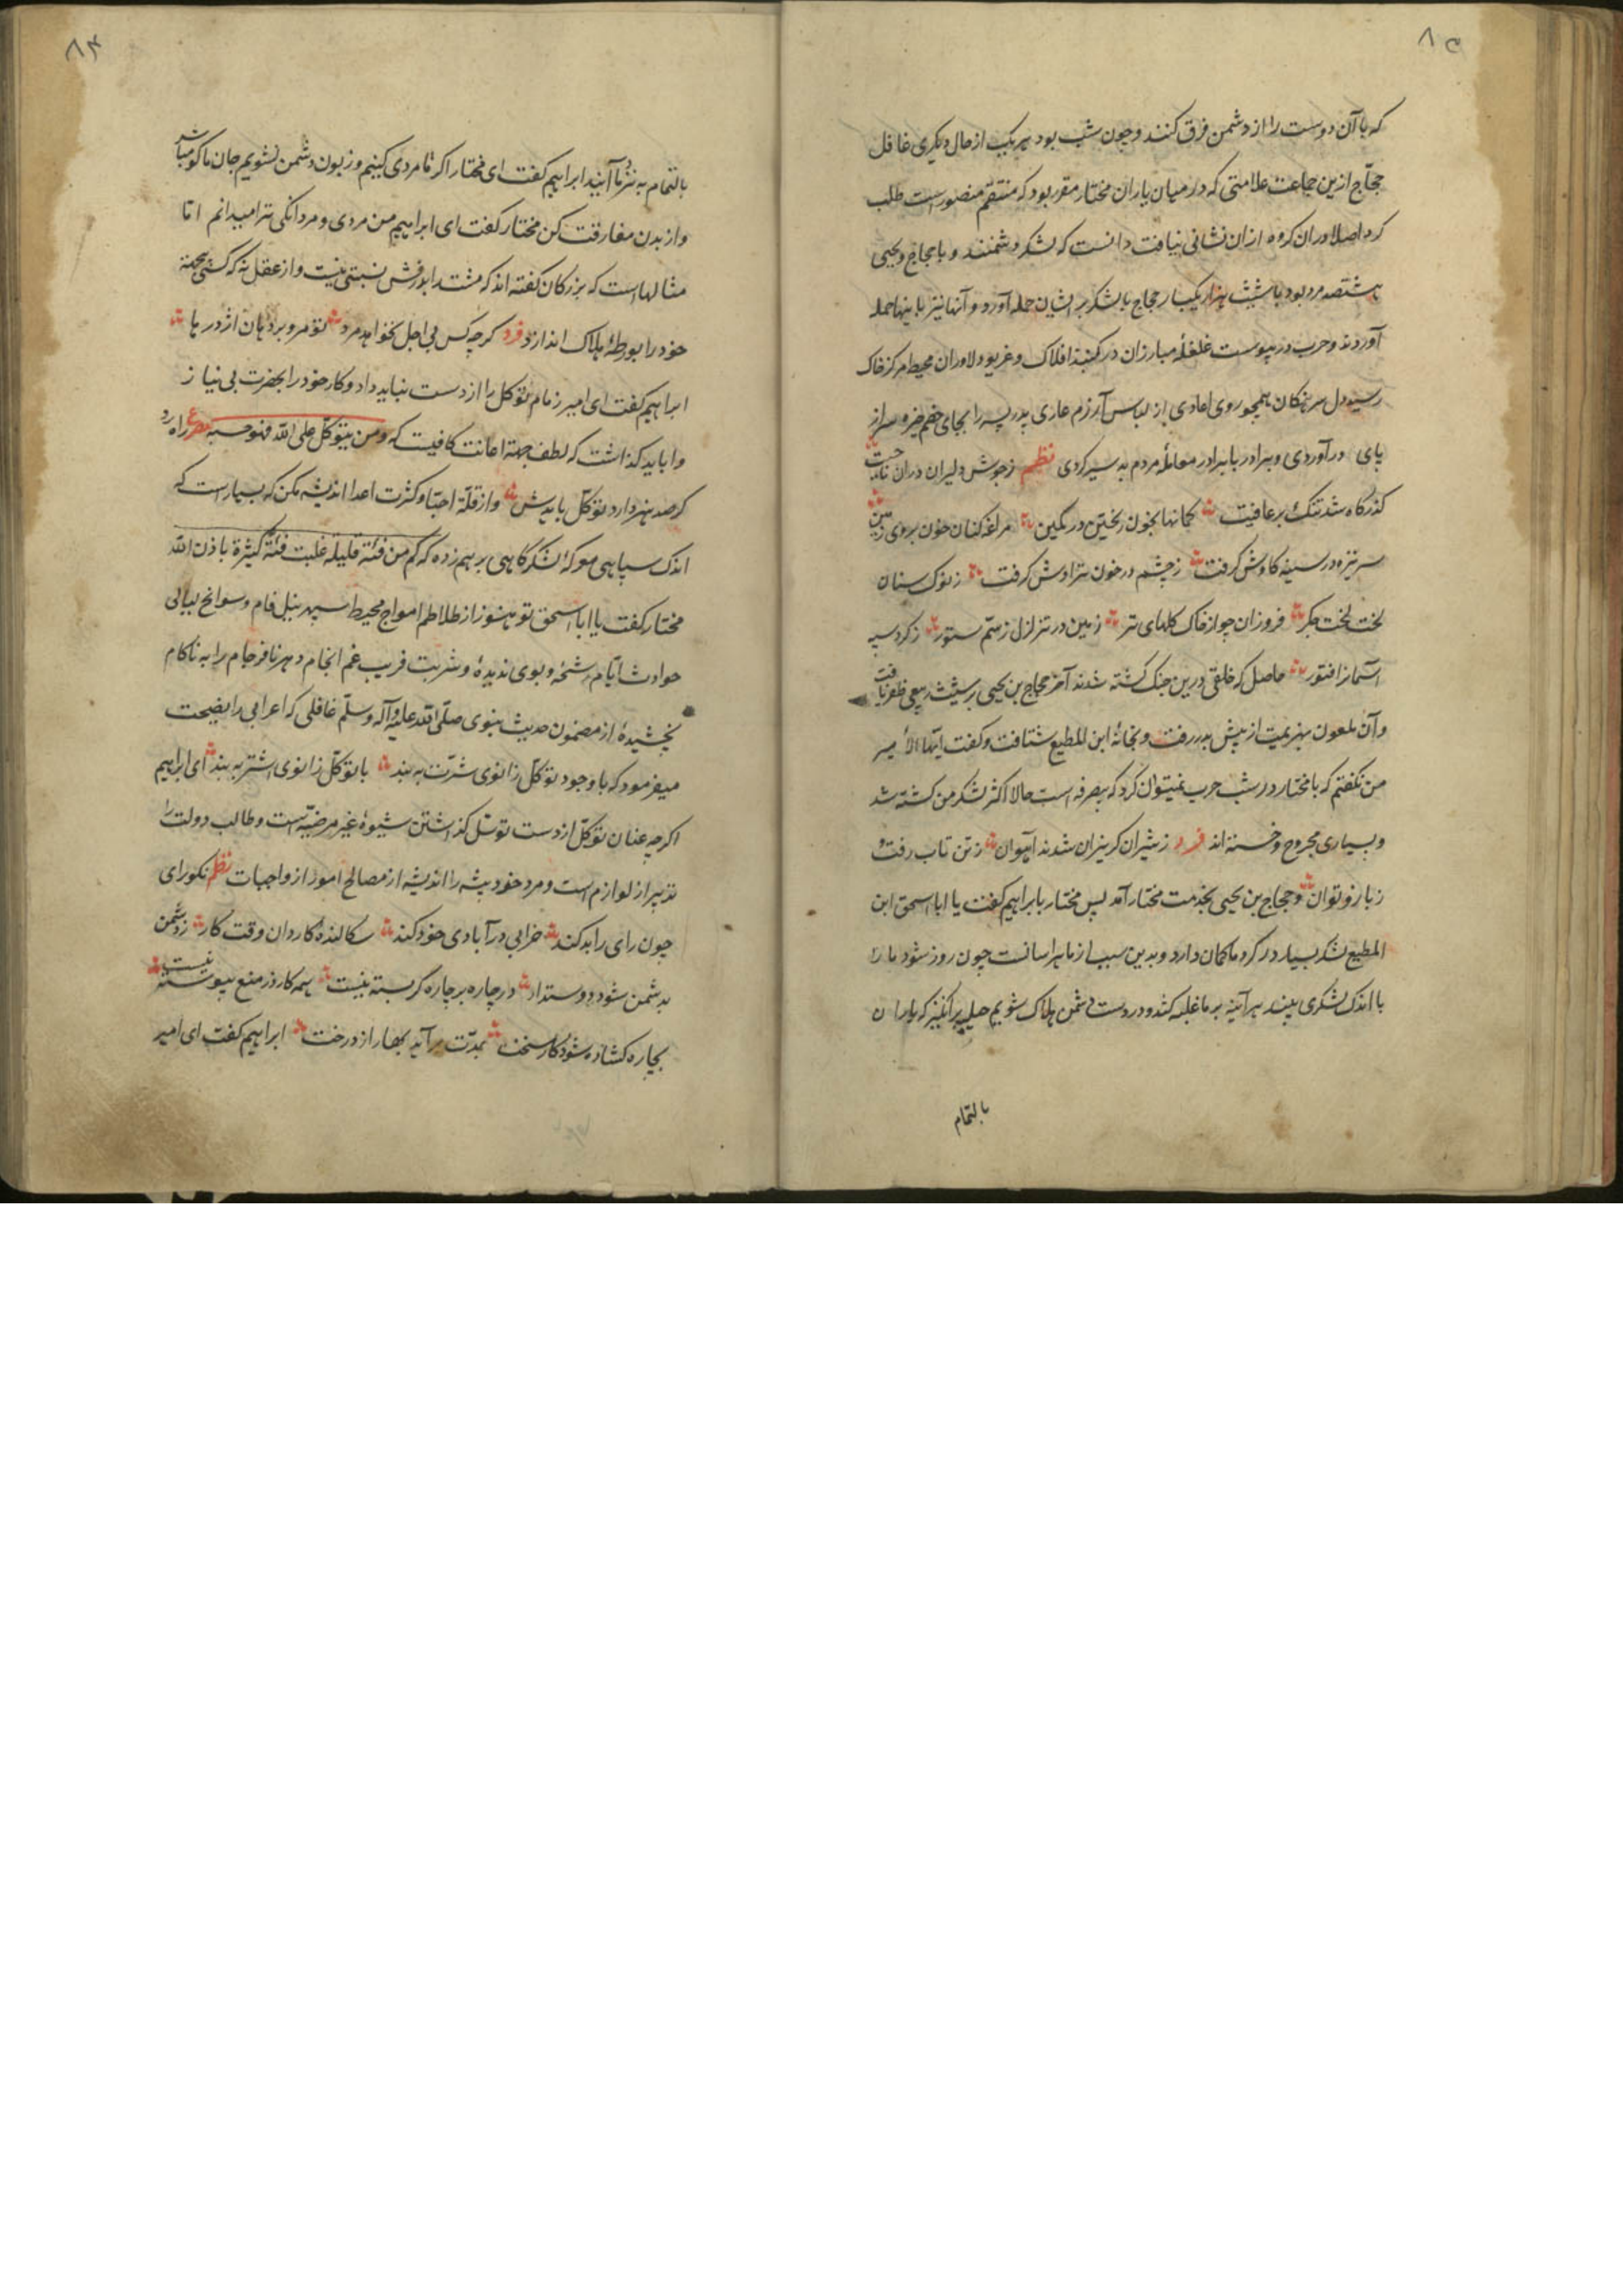 ۸۳
که با آن دوست را از دشمن فرق کنند و چون شب بود هر یک از حال دیگری غافل
حجّاج ازین جماعت علامتی که در میان یاران مختار مقرر بود که منتقم منصور است طلب
کرد اصلا و ران کروه ازان نشانی نیافت دانست که لشکر دشمنند و با حجاج و یحیی
هشتصد مرد بود باشیث هزار یکبار حجاج بالشکر بر ایشان حمله آورد و آنها نیز باینها حمله
آوردند و حرب در پیوست غلغلهٔ مبارزان در کنبذ افلاک و غریو دلاوران محیط مرکز خاک
رسید دل سرهنکان همچو روی اعادی از لباس آزرم عاری پدر پسر را بجای خصم خیره سر از
پای درآوردی و برادر با برادر معاملهٔ مردم به سر کردی نظم ز جوش دلیران دران
کذرکاه شد تنک بر عافیت کمانها بخون ریختن در کمین مراغه کنان خون بروی زمین
سر نیزه در سینه کاوش کرفت ز چشم در خون تراوش کرفت ز نوک سنان
لخت لخت جکر فروزان چو از خاک کلهای تر زمین در تزلزل ز سمّ ستور ز کرد سیه
آسمان را فتور حاصل که خلقی درین جنک کشته شدند آخر حجاج بن یحیی بر شیث ربعی ظفر یافت
و آن ملعون بهزیمت از پیش بدر رفت و بخانهٔ ابن المطیع شتافت و کفت ایّها الأمیر
من نکفتم که با مختار در شب حرب نمیتوان کرد که بیصرفه است حالا اکثر لشکر من کشته شد
و بسیاری مجروح و خسته اند فرد ز شیران کریزان شدند آهوان ز تن تاب رفت و
ز بازو توان و حجاج بن یحیی بخدمت مختار آمد پس مختار با ابراهیم کفت یا ابا اسحق ابن
المطیع لشکر بسیار در کرد ما کمان دارد و بدین سبب از ما هراسانست چون روز شود ما را
با اندک لشکری بیند هر آینه بر ما غلبه کند و در دست دشمن هلاک شویم حیله برانکیز که یاران
بالتمام
۸۴
بالتمام به نزد ما آیند ابراهیم کفت ای مختار اکر نامردی کنیم و زبون دشمن نشویم جان ما کو مباش
و از بدن مفارقت کن مختار کفت ای ابراهیم من مردی و مردانکی ترا میدانم امّا
مثالهاست که بزرکان کفته اند که مشت را با درفش نسبتی نیست و از عقل نه که کسی بعمد
خود را بورطهٔ هلاک اندازد فرد کرچه کس بی اجل نخواهد مرد تو مرو بر دهان اژدرها
ابراهیم کفت ای امیر زمام توکل را از دست نباید داد و کار خود را بحضرت بی نیاز
وا باید کذاشت که لطفش جهة اعانت کافیست که و من یتوکّل علی اللّه فهو حسبه مصرع راه رو
کر صد هنر دارد توکّل بایدش و از قلّة احبّا و کثرت اعدا اندیشه مکن که بسیار است که
اندک سپاهی موکهٔ لشکر کاهی بر هم زده که کم من فئة قلیلة غلبت فئة کثیرة باذن اللّه
مختار کفت یا ابا اسحق تو هنوز از طلاطم امواج محیط سپهر نیل فام و سوانح لیالی
حوادث ایّام رشحه و بوی ندیدهٔ و شربت فریب غم انجام دهر نافرجام را به ناکام
نچشیدهٔ از مضمون حدیث نبوی صلّی اللّه علیه و آله و سلّم غافلی که اعرابی را نصیحت
میفرمود که با وجود توکّل زانوی شترت به بند با توکّل زانوی اشتر به بند ای ابراهیم
اکرچه عنان توکّل از دست توسّل کذاشتن شیوهٔ غیر مرضیّه است و طالب دولت را
تدبیر از لوازم است و مرد خود بیشه را اندیشه از مصالح امور از واجبات نظم نکو رای
چون رای را بد کند خرابی در آبادی خود کند سکالندهٔ کاردان وقت کار ز دشمن
بدشمن شود دوستدار در چاره بر چاره کر بسته نیست همه کار از منع پیوسته نیست
بچاره کشاده شود کار سخت بمدّت بر آید بهار از درخت ابراهیم کفت ای امیر